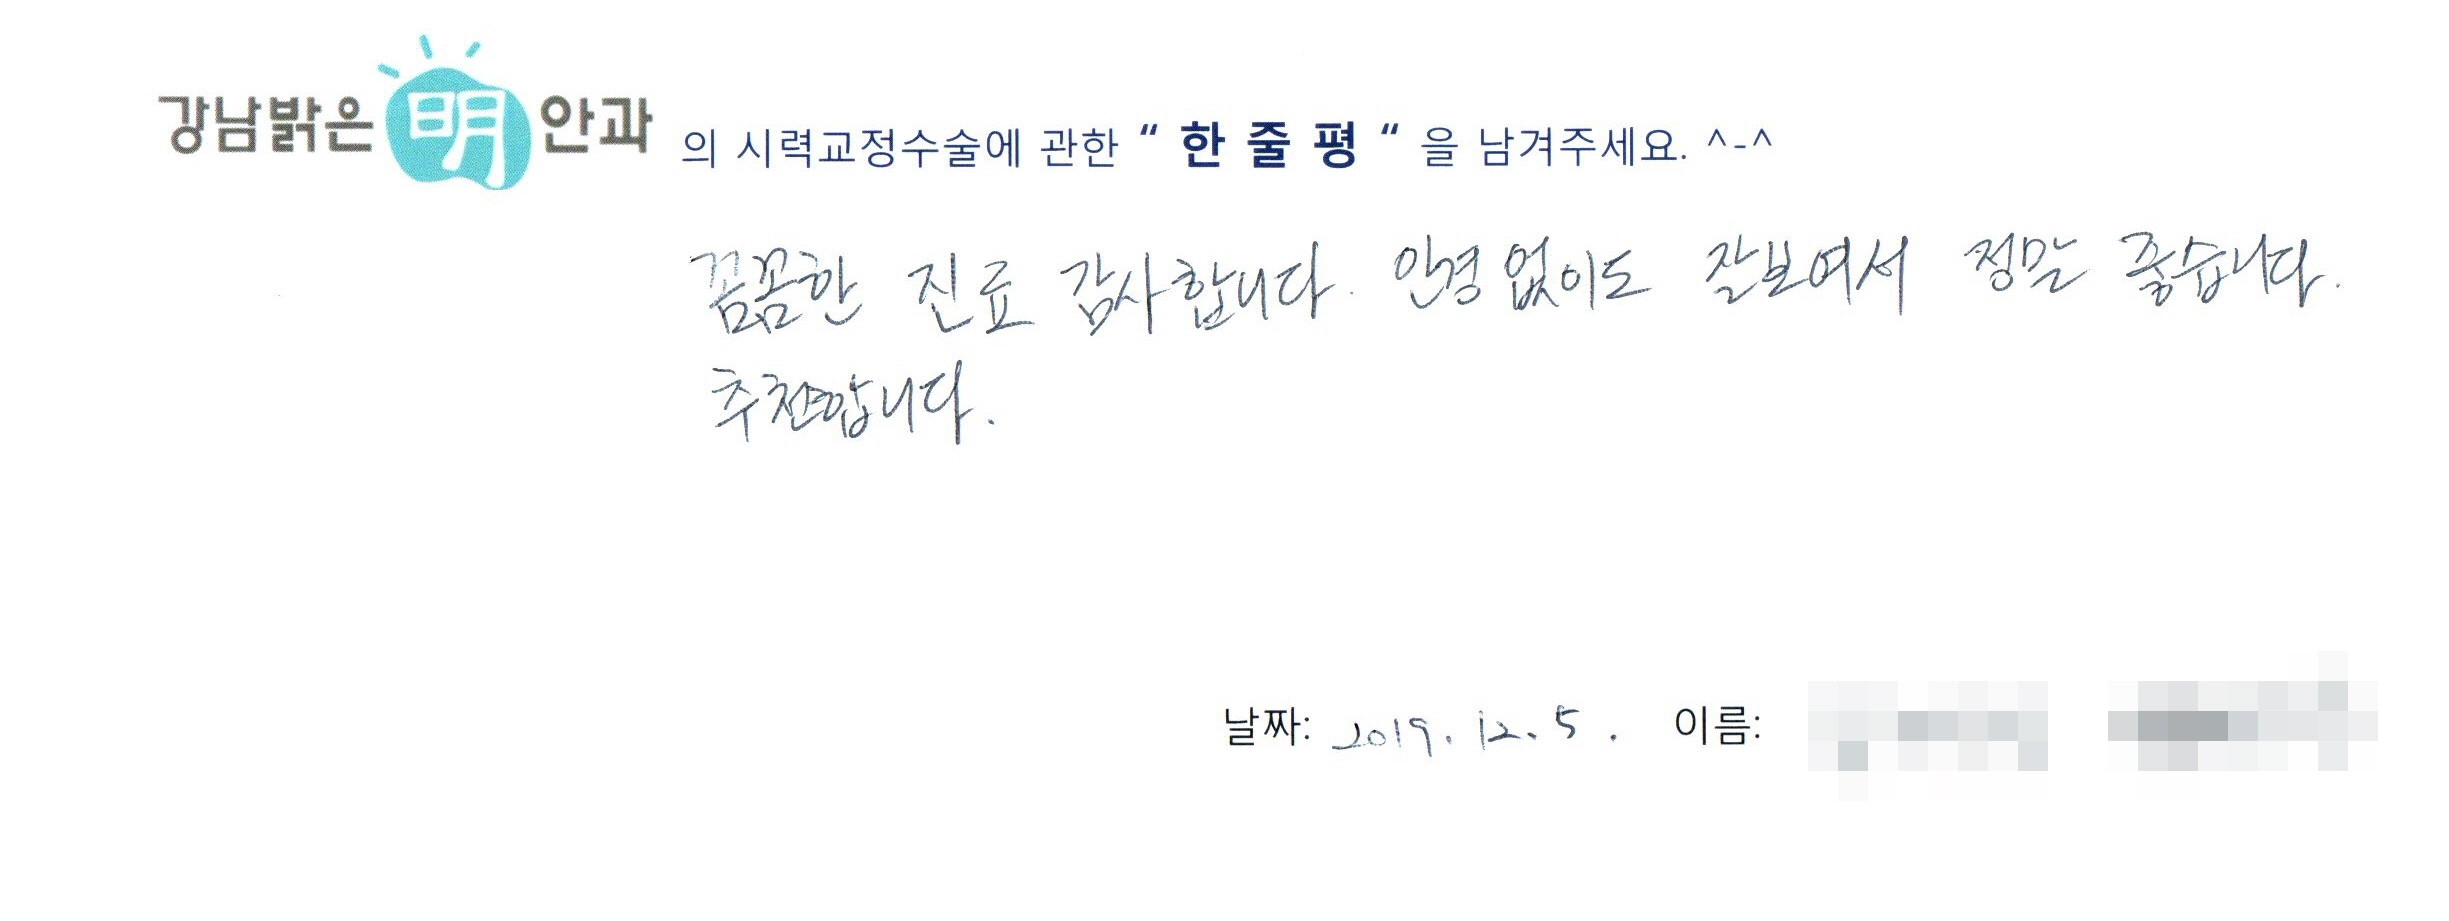 강남밝은 明 안과 의 시력교정수술에 관한 “ 한 줄 평 “ 을 남겨주세요. ^-^
꼼꼼한 진료 감사합니다. 안경 없이도 잘보여서 정말 좋습니다.
추천합니다.
날짜: 2019. 12. 5. 이름: